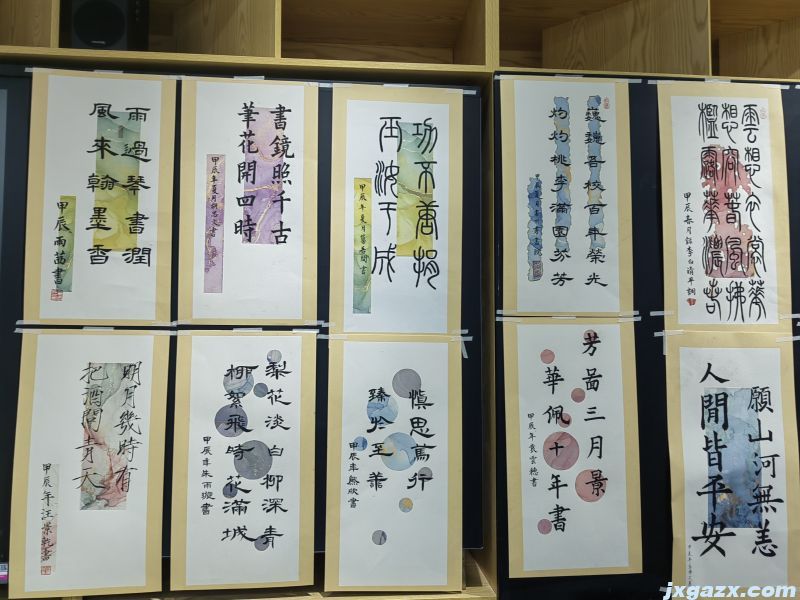 雨過琴書潤
風來翰墨香
甲辰雨苗書
書鏡照千古
筆花開四時
甲辰年夏月胡忠文書
功不唐捐
玉汝于成
甲辰年夏月
巍巍吾校百年榮光
灼灼桃李滿園芬芳
雲想衣裳華
想容春風拂
檻露華濃若
甲辰春月錄李白清平調
明月幾時有
把酒問青天
甲辰年汪景乾書
梨花淡白柳深青
柳絮飛時花滿城
甲辰年朱雨璇書
慎思篤行
臻於至善
甲辰年熊欣書
芳菑三月景
華佩十年書
甲辰年袁雲穗書
願山河無恙
人間皆平安
jxgazx.com